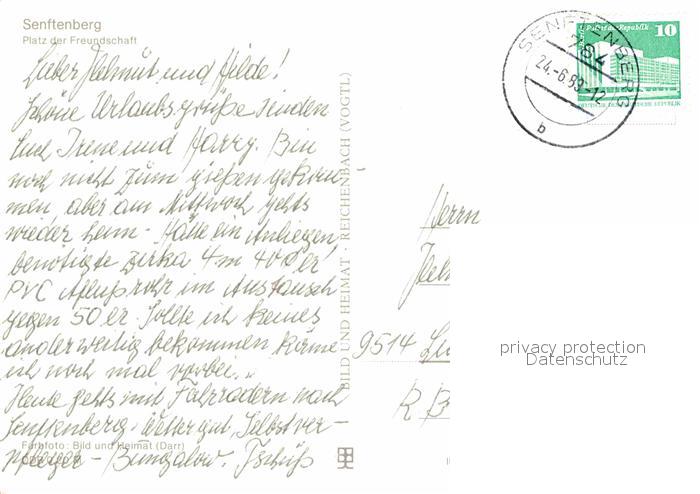 Senftenberg
Platz der Freundschaft
Lieber Helmut und Hilde!
Schöne Urlaubsgrüße senden
Euch Irene und Harry. Bin
noch nicht zum gießen gekom-
men, aber am Mittwoch gehts
wieder heim - Hätte ein Anliegen,
benötigte zirka 4 m 40er
PVC Abflußrohr im Austausch
gegen 50er. Sollte ich keines
anderweitig bekommen käme
ich noch mal vorbei.
Heute gehts mit Fahrrädern nach
Senftenberg. Wetter gut, Selbstver-
pfleger - Bungalow. Tschüß
Farbfoto: Bild und Heimat (Darr)
BILD UND HEIMAT · REICHENBACH (VOGTL)
SENFTENBERG
784
24.-6.89-12
b
10
Palast der Republik
Herrn
9514
privacy protection
Datenschutz